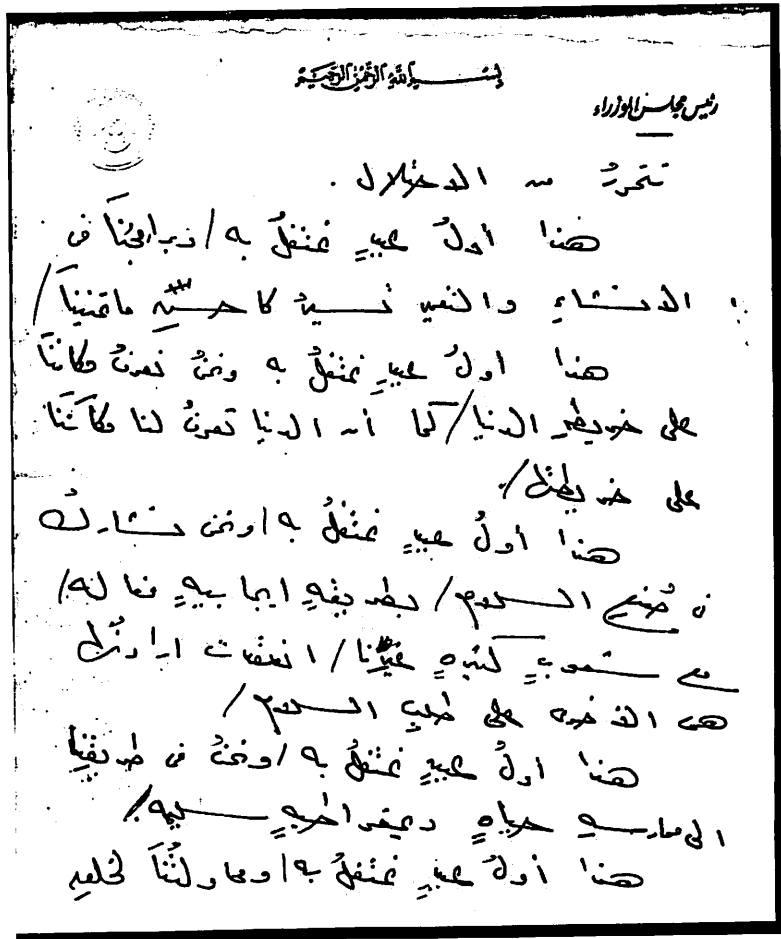 بسم الله الرحمن الرحيم
رئيس مجلس الوزراء
نتحررُ من الاحتلال .
هذا أولُ عيدٍ نحتفلُ به / وبرامجُنا فى
الانشاءِ والتعمير تسيرُ كأحسنِ ما تمنينا /
هذا أولُ عيدٍ نحتفلُ به ونحنُ نعرفُ مكانَنا
على خريطةِ الدنيا / كما أن الدنيا تعرفُ لنا مكانَنا
على خريطتها /
هذا أولُ عيدٍ نحتفلُ به / ونحن نشاركُ
فى صُنعِ السلام / بطريقةٍ ايجابيةٍ فعالة /
مع شعوبٍ كثيرةٍ غيرِنا / انعقدت ارادتُها
هى الأخرى على طلبِ السلام /
هذا أولُ عيدٍ نحتفلُ به / ونحنُ فى طريقِنا
الى ممارسةِ حياةٍ ديمقراطيةٍ سليمة /
هذا أولُ عيدٍ نحتفلُ به / ومحاولتُنا لخلقِ